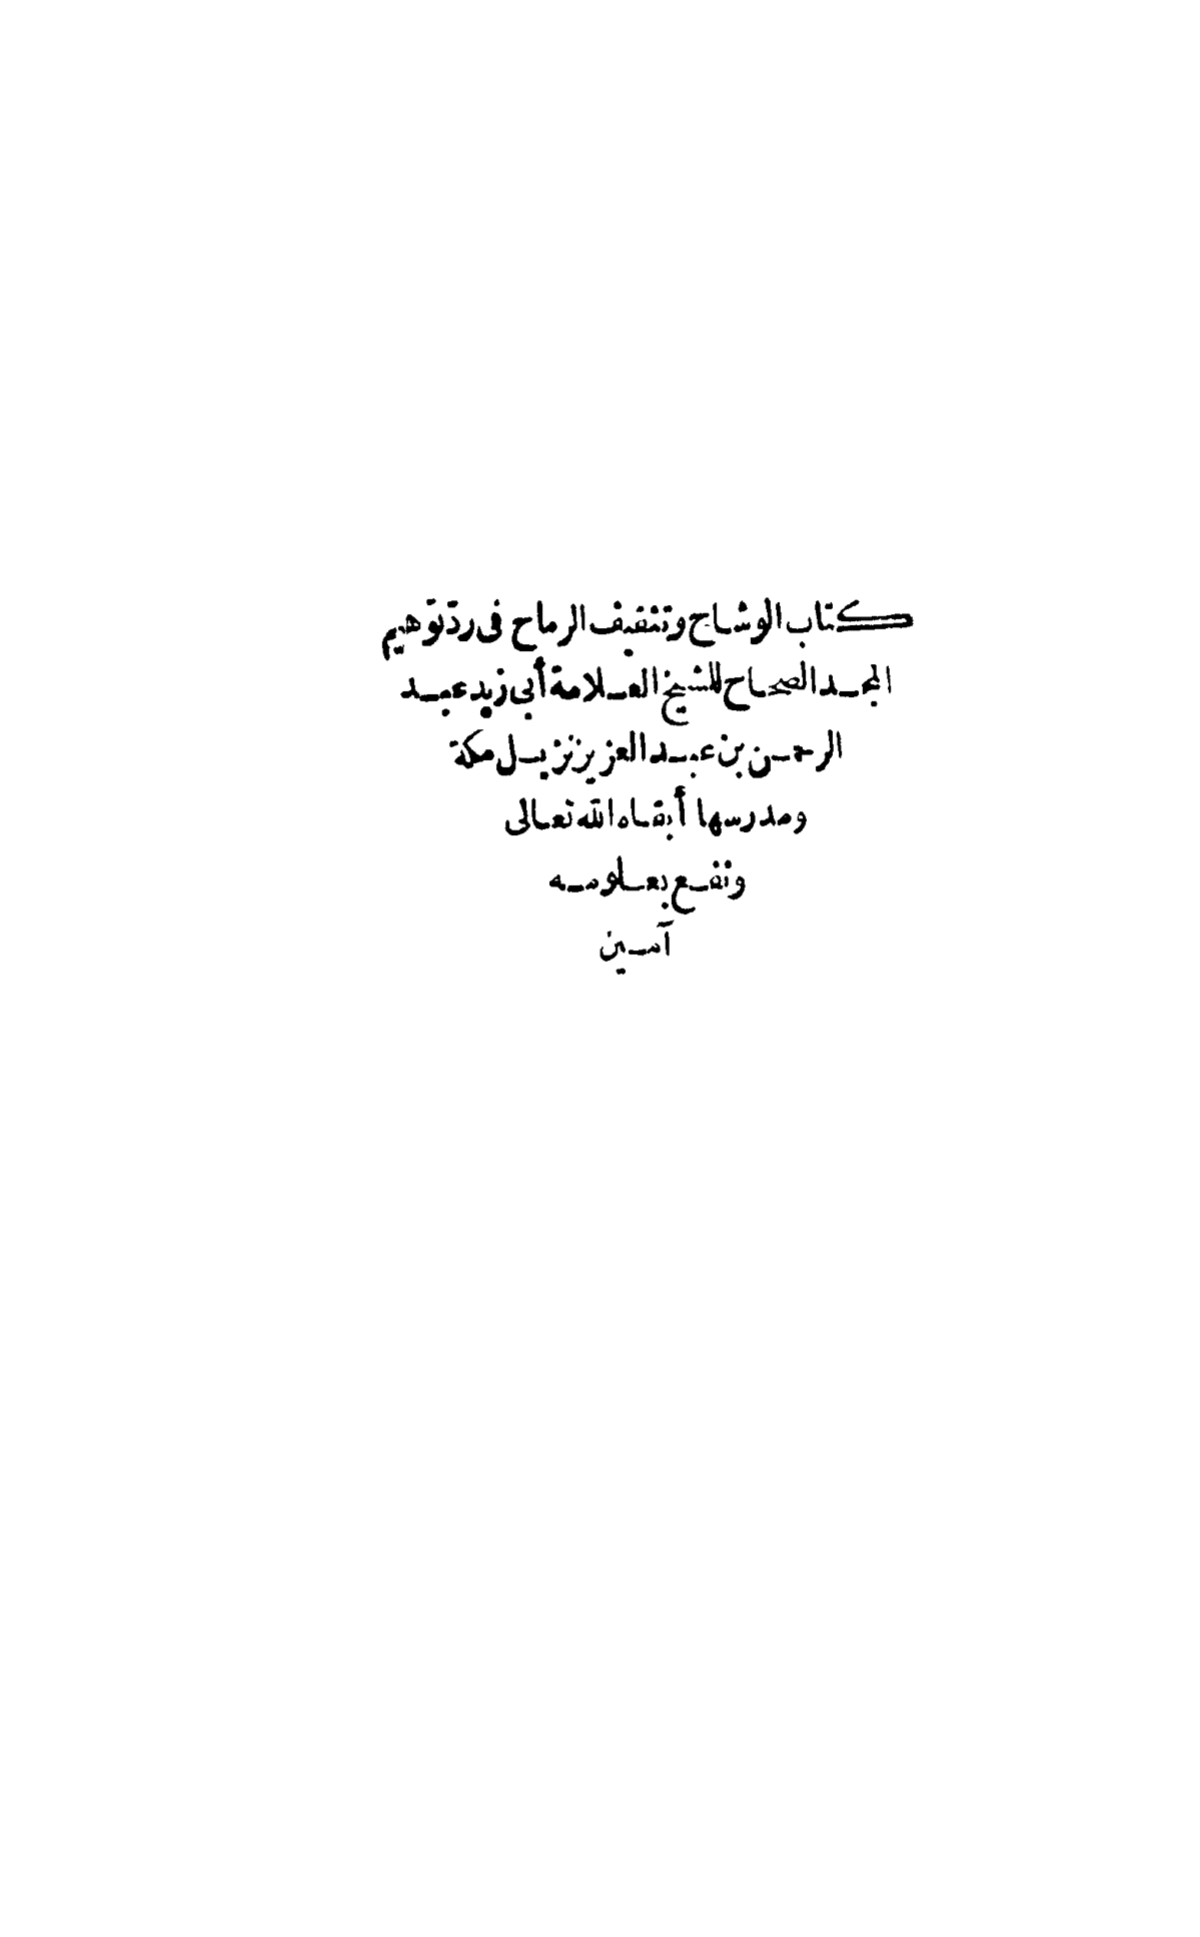 كتاب الوشاح وتثقيف الرماح فى ردّ توهيم
المجد الصحاح للشيخ العلامة أبى زيد عبد
الرحمن بن عبد العزيز نزيل مكة
ومدرسها أبقاه الله تعالى
ونفع بعلومه
آمين